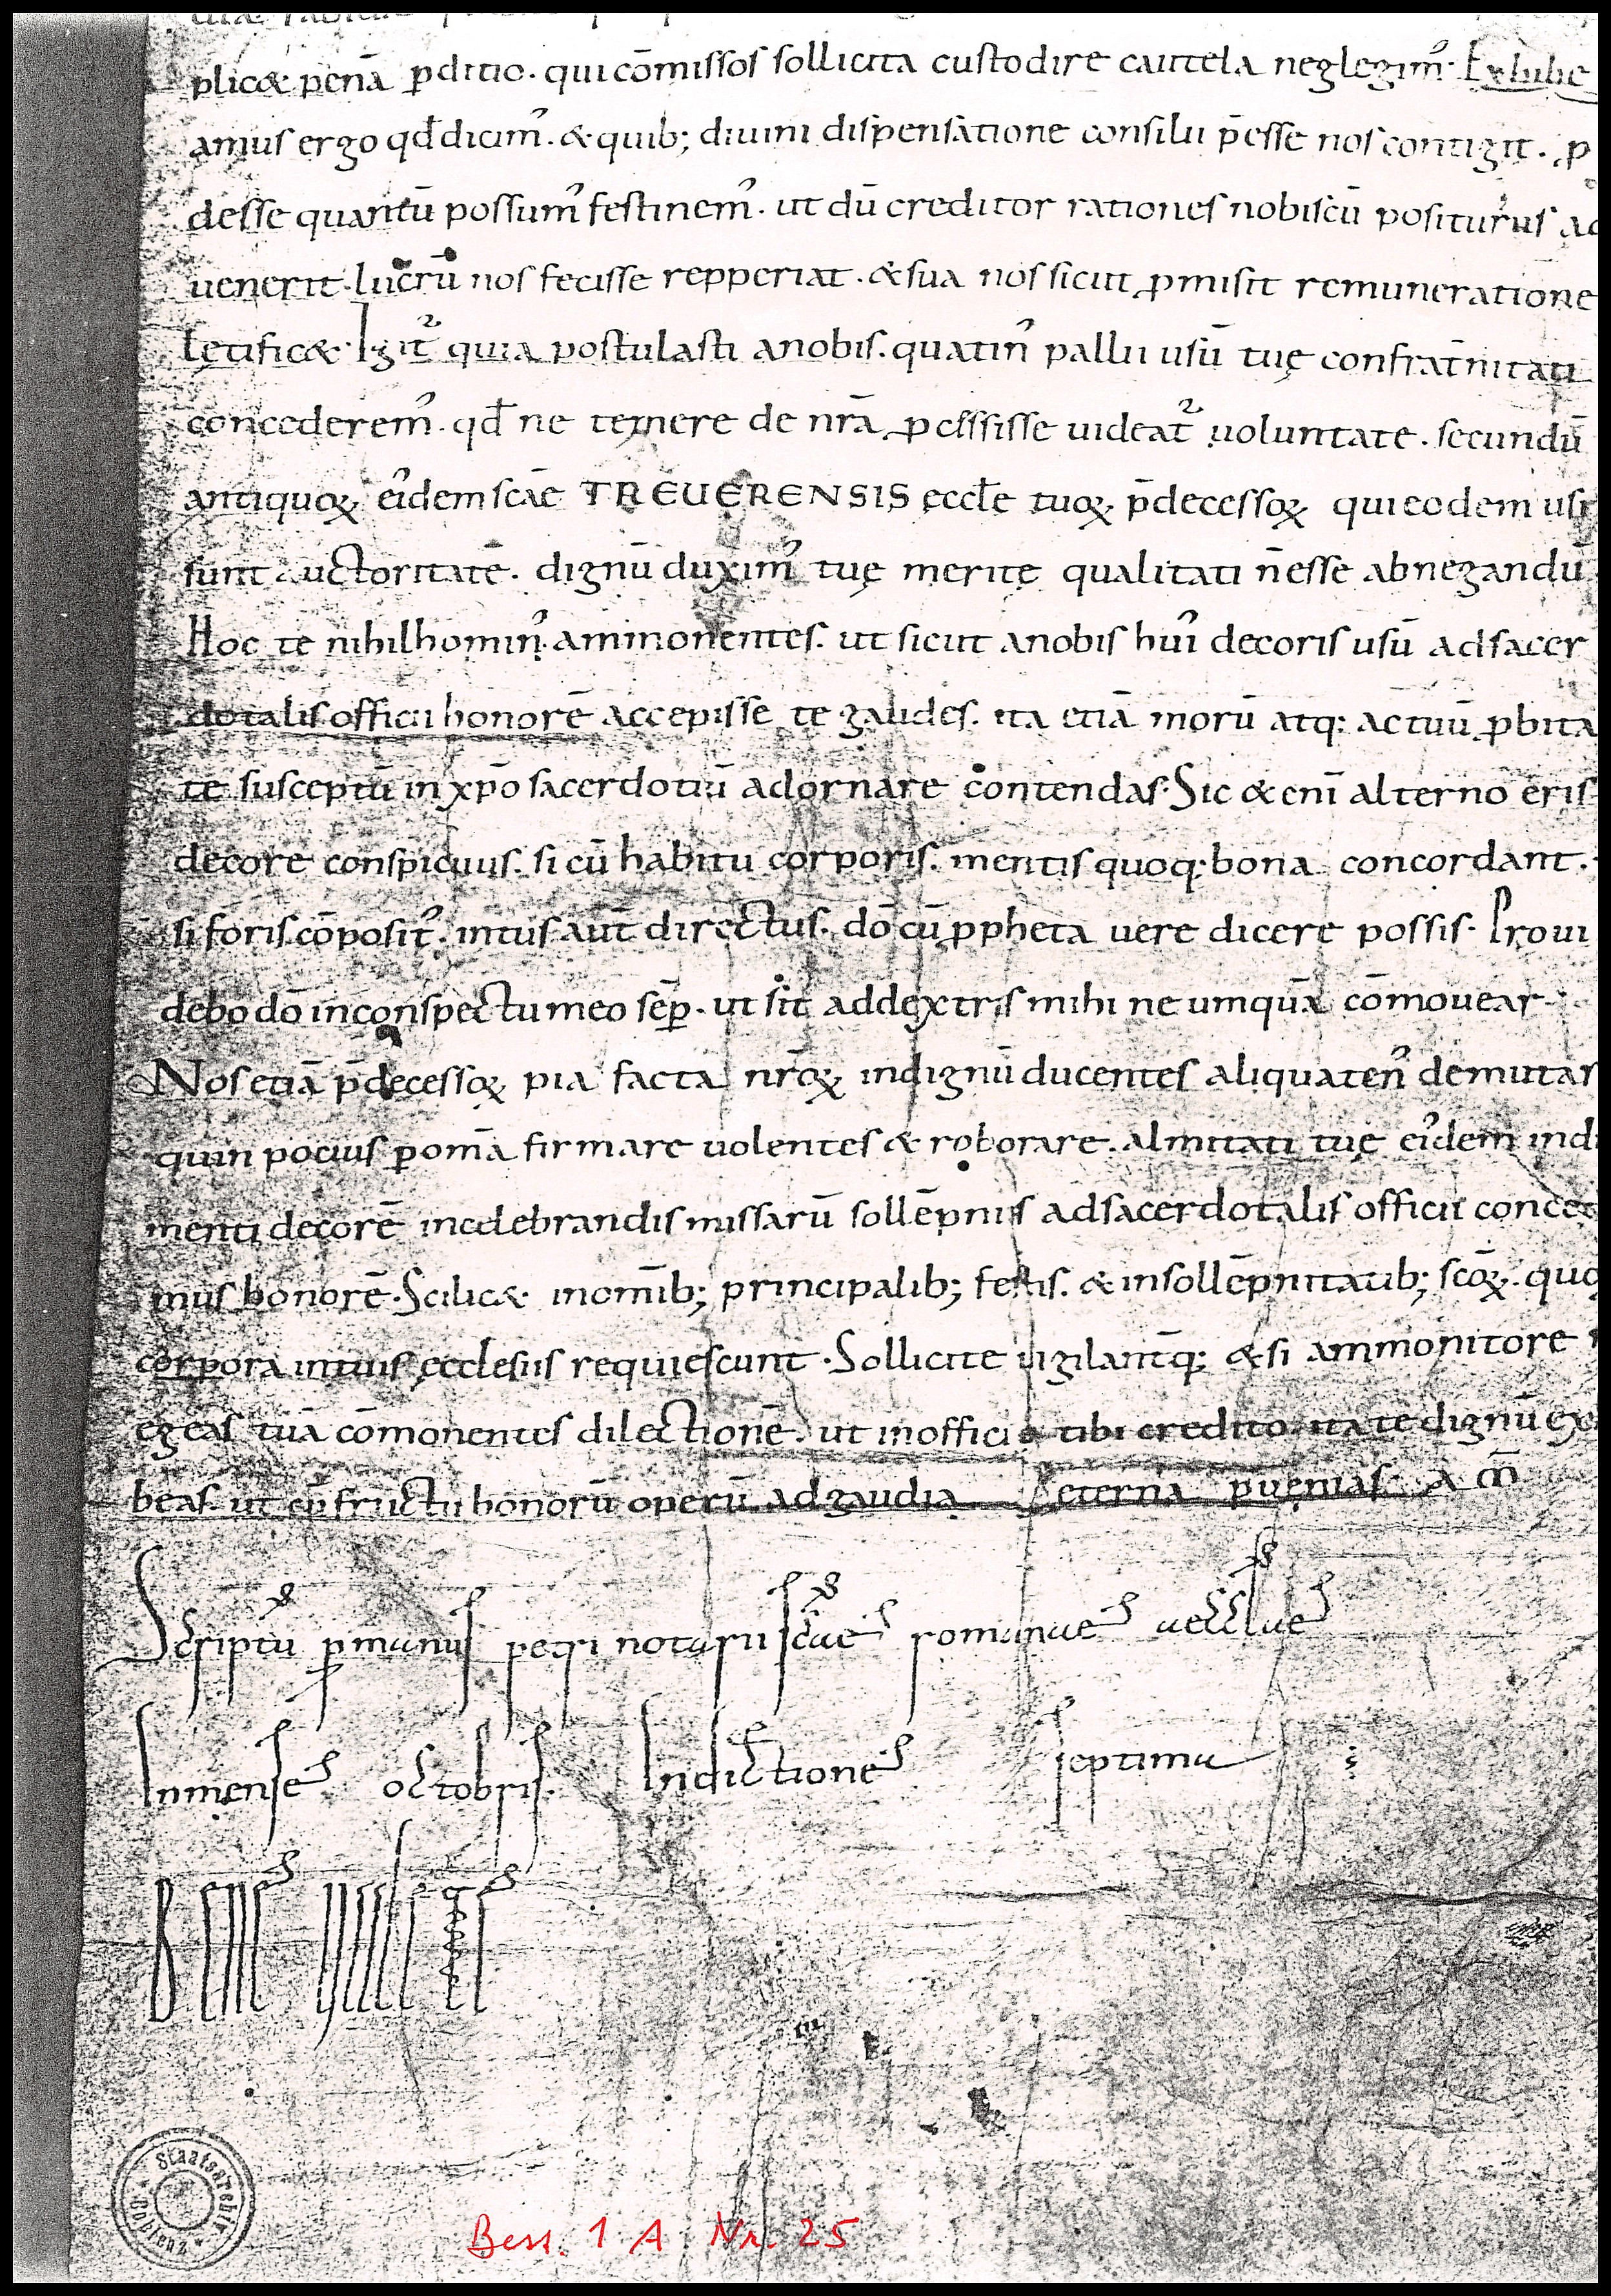 plic& penā p̱ditio. qui cōmissos sollicita custodire cautela neglegim᾿. Exhibe
amus ergo qđ dicim᾿. & quib; diuini dispensatione consilii p̄esse nos contigit. ꝓ
desse quantū possum᾿ festinem᾿. ut dū creditor rationes nobiscū positurus ad
uenerit. lucrū nos fecisse repperiat. & sua nos sicut ꝓmisit remuneratione
lętific&. Igit᷑ quia postulasti anobis. quatin᾿ pallii usū tuę confrat̄nitati
concederem᾿. qđ ne temere de nr̄a ꝓcessisse uideat᷑ uoluntate. secundū
antiquoꝝ ei᾿dem scāe TREUERENSIS eccłe tuoꝝ p̄decessoꝝ qui eodem usi
sunt auctoritatē. dignū duxim᾿ tuę meritę qualitati n̄ esse abnegandū
Hoc te nihilhomin᾿ ammonentes. ut sicut anobis hui᾿ decoris usū adsacer
dotalis officii honorē accepisse te gaudes. ita etiā morū atq; actuū ꝓbita
te susceptū in xp̄o sacerdotiū adornare contendas. Sic & enī alterno eris
decore conspicuus. si cū habitu corporis. mentis quoq; bona concordant.
si foris cōposit᾿. intus aut̄ directus. dō cū ꝓpheta uere dicere possis. Proui
debo dō inconspectu meo sēp̱. ut sit addextris mihi ne umquā cōmouear
Nos etiā p̄decessoꝝ pia facta nr̄oꝝ indignū ducentes aliquaten᾿ demutar
quin pocius ꝑ om̄a firmare uolentes & roborare. almitati tuę ei᾿dem indu
menti decorē incelebrandis missarū sollēpniis adsacerdotalis officii conced
mus honorē. Scilic& inom̄ib; principalib; festis. & insollēpnitatib; scōꝝ. quo
corpora intuis ęcclesiis requiescunt. Sollicite uigilant̄q; &si ammonitore n
egeas tuā cōmonentes dilectionē. ut inofficio tibi credito ita te dignū ex
beas. ut cū fructu bonorū operū ad gaudia eterna ꝑuenias. A m̄
Scriptū ꝑ manus petri notarii scae romanae aecclae
In mense octobris. Indictione septima
BENE UALETE
Staatsarchiv
Coblenz
Best. 1 A Nr. 25